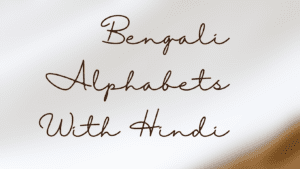 Bengali
Alphabets
With Hindi